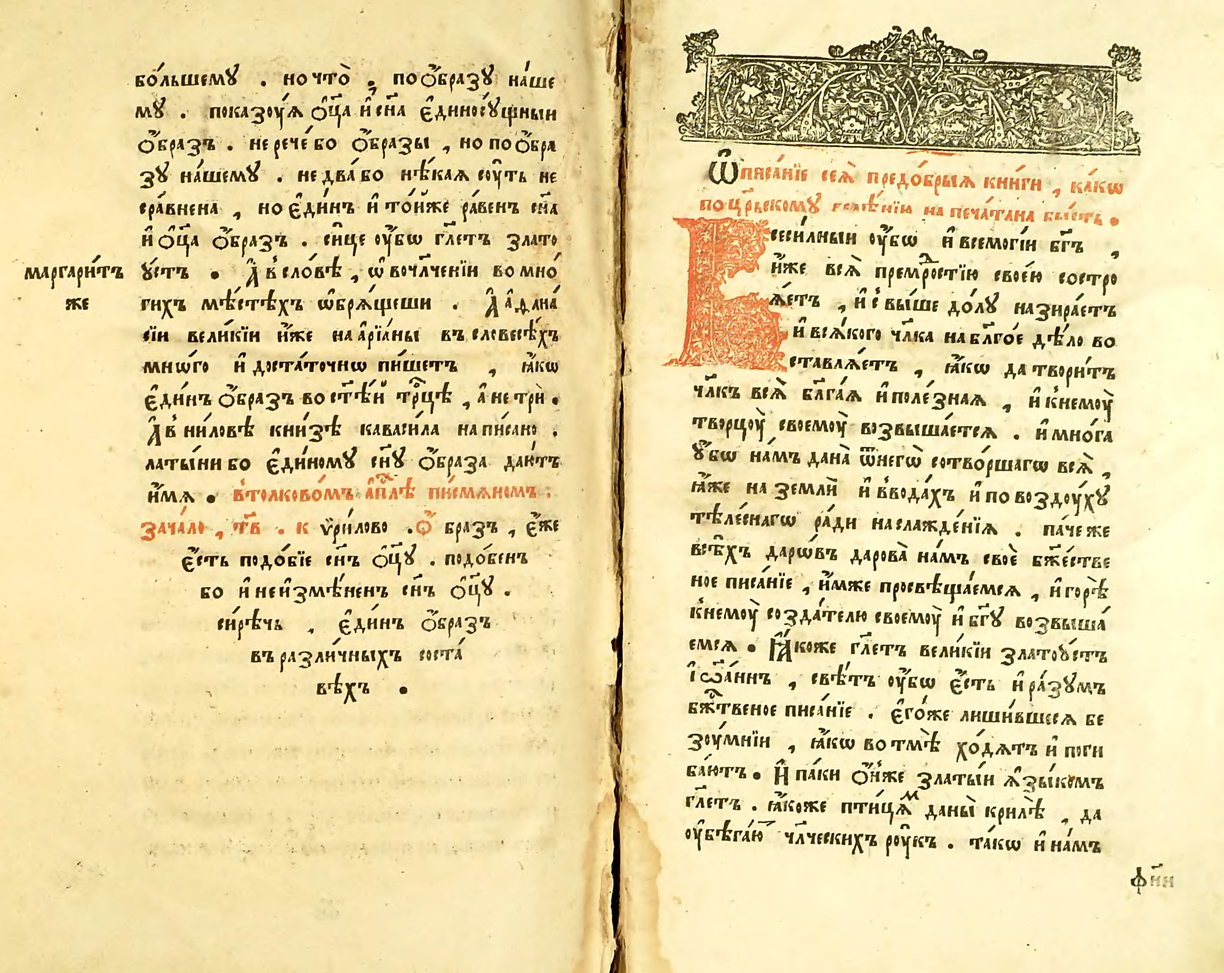 бо́льшемꙋ . но что̀ , по ѻ҆́бразꙋ на́ше
мꙋ . показꙋ́ѧ ѻ҆ц҃а и҆ сн҃а є҆диносꙋ́щныи
ѻ҆́бразъ . не рече́ бо ѻ҆́бразы , но по ѻ҆́бра
зꙋ на́шемꙋ . не два́ бо нѣ́каѧ сꙋ́ть не
сра́внена , но є҆ди́нъ и҆ то́йже ра́венъ сн҃а
и҆ ѻ҆ц҃а ѻ҆́бразъ . си́це ᲂу҆́бѡ гл҃етъ злато
ꙋ́стъ . А҆ в сло́вѣ , ѡ҆ вочл҃че́нїи во мно́
маргари́тъ
же
гихъ мѣ́стѣхъ ѡ҆брѧ́щеши . А҆ а҆ѳана́
сїи вели́кїи и҆́же на а҆рїа́ны въ словесѣ́хъ
мно́гѡ и҆ доста́точнѡ пи́шетъ , ꙗ҆́кѡ
є҆ди́нъ ѻ҆́бразъ во ст҃ѣ́й трⷪ҇цѣ , а҆ не трѝ .
А҆ в ни́ловѣ кни́зѣ кава́сила напи́сано .
латы́ни бо є҆ди́номꙋ сн҃ꙋ ѻ҆́браза даю́тъ
и҆́мѧ . в толко́вомъ а҆пⷭ҇лѣ пи́смѧномъ :
зача́ло , т҃в . к ѵ҆ри́лово . Ѻ҆́бразъ , є҆́же
є҆́сть подо́бїе сн҃ъ ѻ҆ц҃ꙋ . подо́бенъ
бо и҆ неи҆змѣ́ненъ сн҃ъ ѻ҆ц҃ꙋ .
си́рѣчь , є҆ди́нъ ѻ҆́бразъ
въ разли́чныхъ соста́
вѣхъ .
Ѿписа́нїе сеѧ̀ предо́брыѧ кни́ги , ка́кѡ
по црⷭ҇ьскомꙋ велѣ́нїю на печа́тана бы́сть .
Всеси́лныи ᲂу҆́бѡ и҆ всемогі́и бг҃ъ ,
и҆́же всѧ̀ премⷣростїю свое́ю состро
ѧ́етъ , и҆ с вы́ше до́лꙋ назира́етъ
и҆ всѧ́кого чл҃ка на бл҃го́е дѣ́ло во
ставлѧ́етъ , ꙗ҆́кѡ да твори́тъ
чл҃къ всѧ̀ бл҃га́ѧ и҆ поле́знаѧ , и҆ к немꙋ̀
творцꙋ̀ своемꙋ̀ возвыша́етсѧ . и҆ мно́га
ᲂу҆́бѡ на́мъ дана̀ ѿ негѡ̀ сотво́ршагѡ всѧ̀ ,
ꙗ҆́же на землѝ и҆ в вода́хъ и҆ по воздꙋ́хꙋ
тѣле́снагѡ ра́ди наслажде́нїѧ . па́че же
всѣ́хъ дарѡ́въ дарова̀ на́мъ своѐ бж҃е́стве
ное писа́нїе , и҆́мже просвѣща́емсѧ , и҆ горѣ̀
к немꙋ̀ созда́телю своемꙋ̀ и҆ бг҃ꙋ возвыша́
емсѧ . Ꙗ҆́коже гл҃етъ вели́кїи златоꙋ́стъ
і҆ѡа́ннъ , свѣ́тъ ᲂу҆́бѡ є҆́сть и҆ ра́зꙋмъ
бжⷭ҇твеное писа́нїе . є҆го́же лиши́вшеесѧ бе
зꙋ́мнїи , ꙗ҆́кѡ во тмѣ̀ хо́дѧтъ и҆ поги
ба́ютъ . И҆ па́ки ѻ҆́нже златы́и ѧ҆зы́комъ
гл҃етъ . ꙗ҆́коже пти́цѧм даны̀ кри́лѣ , да
ᲂу҆бѣга́ю чл҃ческихъ рꙋ́къ . та́кѡ и҆ на́мъ
ф҃ни